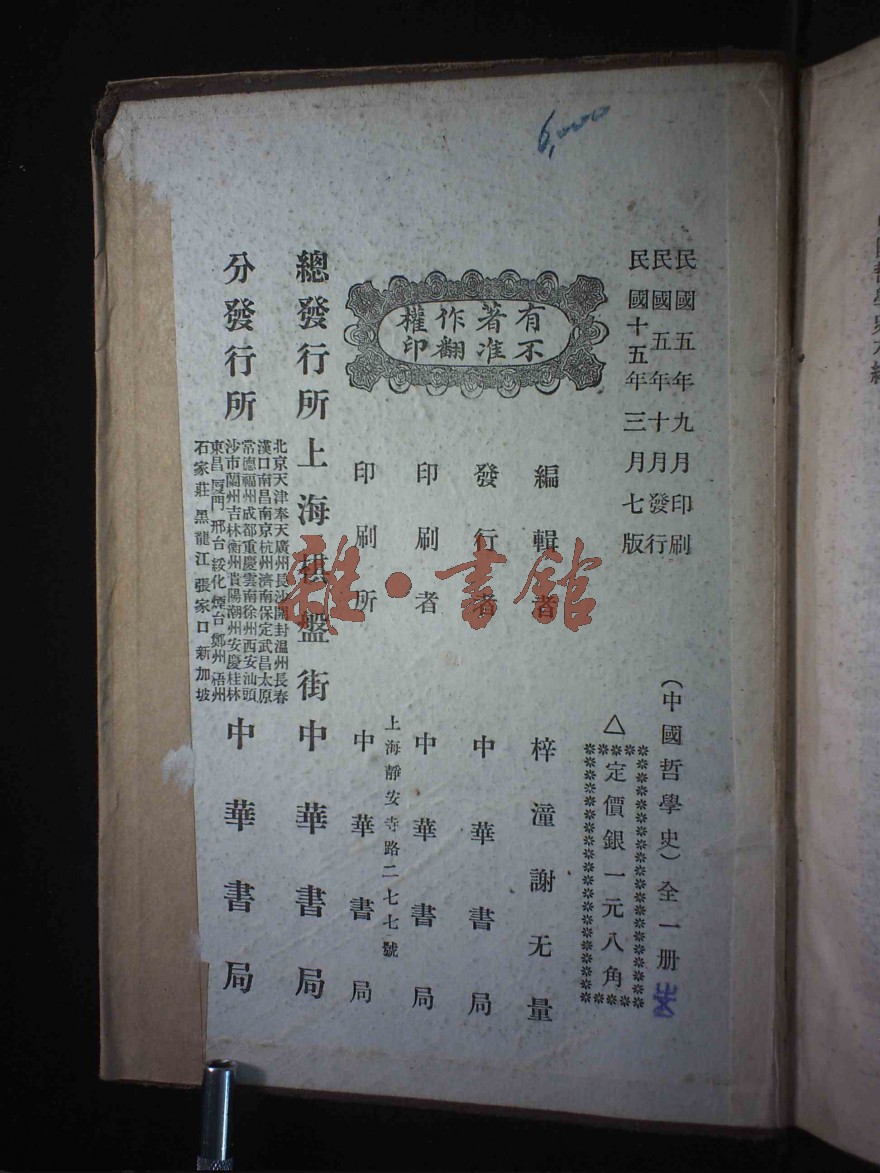 6,000
民國五年九月印刷
民國五年十月發行
民國十五年三月七版
（中國哲學史）全一册
△定價銀一元八角
有著作權
不准翻印
編輯者 梓潼謝无量
發行者 中華書局
印刷者 中華書局
上海靜安寺路二七七號
印刷所 中華書局
總發行所 上海棋盤街 中華書局
分發行所
北京天津奉天廣州長沙開封溫州長春
漢口南昌南京杭州濟南保定武昌太原
常德福州成都重慶雲南徐州西安汕頭
沙市蘭州吉林衡州貴陽潮州安慶桂林
東昌廈門邢台綏化煙台鄭州梧州
石家莊黑龍江張家口新加坡
中華書局
雜·書館